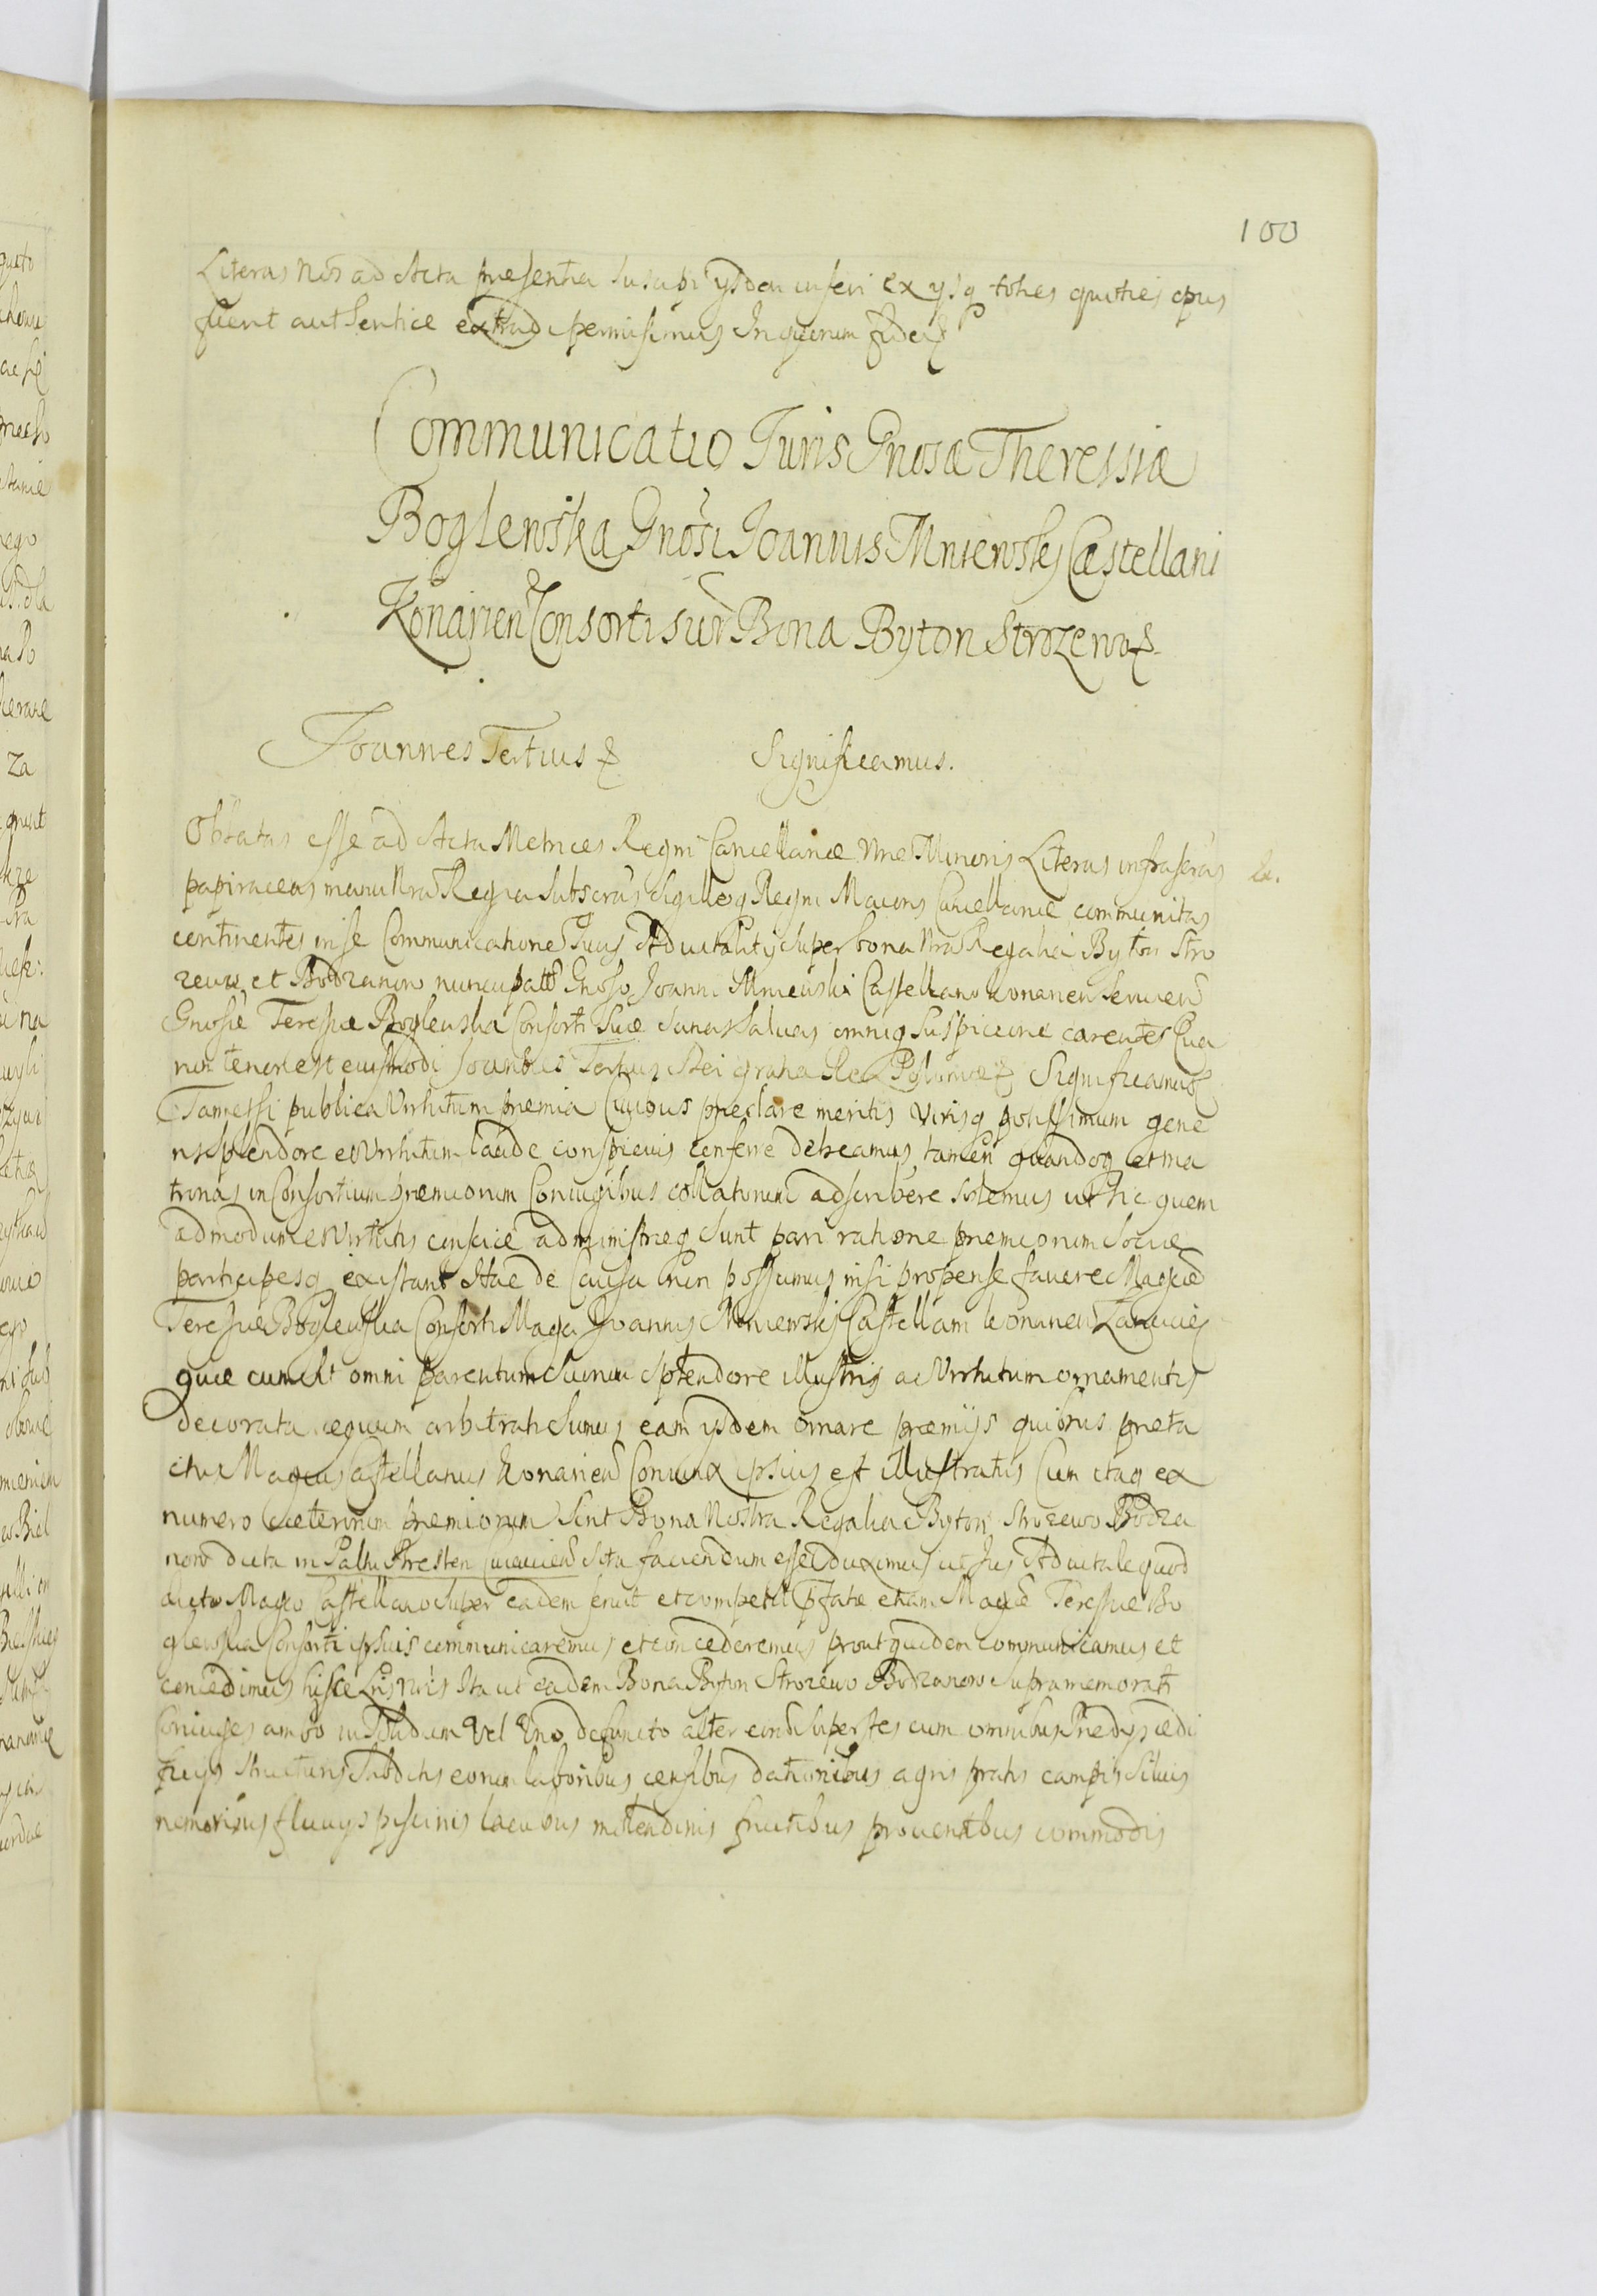 100
Literas nrās ad Acta presentia suscipi ysdem inseri ex ysq toties quoties opus
fuerit authentice extradi permisimus In quorum fidem
Communicatio Juris Gnosæ Theressiæ
Boglewska Gnōsi Joannis Mniewskj Castellani
Konarien Consorti sup Bona Byton Strozewo
Joannes Tertius Significamus.
Oblatas esse ad Acta Metrices Regni Cancellariæ Nræ Minoris Literas infrascras
papiraceas manu Nra Regia subscras Sigilloq Regni Maioris Cancellariæ communitas
continentes in se Communicatione Juris Aduitalitys super bona Nra Regalia Byton Stro
zewo et Bodzanowo nuncupat Gnoso Joanni Mniewski Castellano Konarien seruien
Gnosæ Teressiæ Boglewska Consorti Suæ Sanas saluas omniq suspicione carentes Qua
rum tenor est eiusmodi Joannes Tertius Dei gratia Rex Poloniæ Significamus
Tametsi publica Virtutum premia Ciuibus preclare meritis Virisq potissimum gene
ris splendore et Virtutum laude conspicuis conferre debeamus tamen quandoq et ma
tronas in Consortium premiorum Coniugibus collatorum adscribere solemus ut sic quem
admodum et Virtutis consciæ administræq sunt pari ratione premiorum sociæ
participesq existant Hac de Causa non possumus nisi propense fauere Magcæ
Teressiæ Boglewska Consorti Magci Joannis Mniewskj Castellani Konarien
quæ cum sit omni parentum suorum splendore illustris ac Virtutum ornamentis
decorata æquum arbitrati sumus eam ysdem ornare præmijs quibus præta
ctus Magcus Castellanus Konarien Coniunx ipsius est illustratus Cum itaq ex
numero cæterorum premiorum sint Bona Nostra Regalia Byton Strozewo Bodza
nowo dicta in Paltu Bresten Cuiauien sita faciendum esse duximus ut Jus Aduitale quod
dicto Magco Castellano super eadem seruit et competit pfatæ etiam Magcæ Teressiæ Bo
glewska Consorti ipsius communicaremus et concederemus prout quidem communicamus et
concedimus hisce Lris nris Ita ut eadem Bona Byton Strozewo Bodzanowo supramemorati
Coniuges ambo insolidum Vel Uno defuncto alter eorum superstes cum omnibus Predys ædi
ficys structuris subditis eorum laboribus censibus dationibus agris pratis campis siluis
nemoribus fluuys piscinis lacubus molendinis fructibus prouentibus commodis